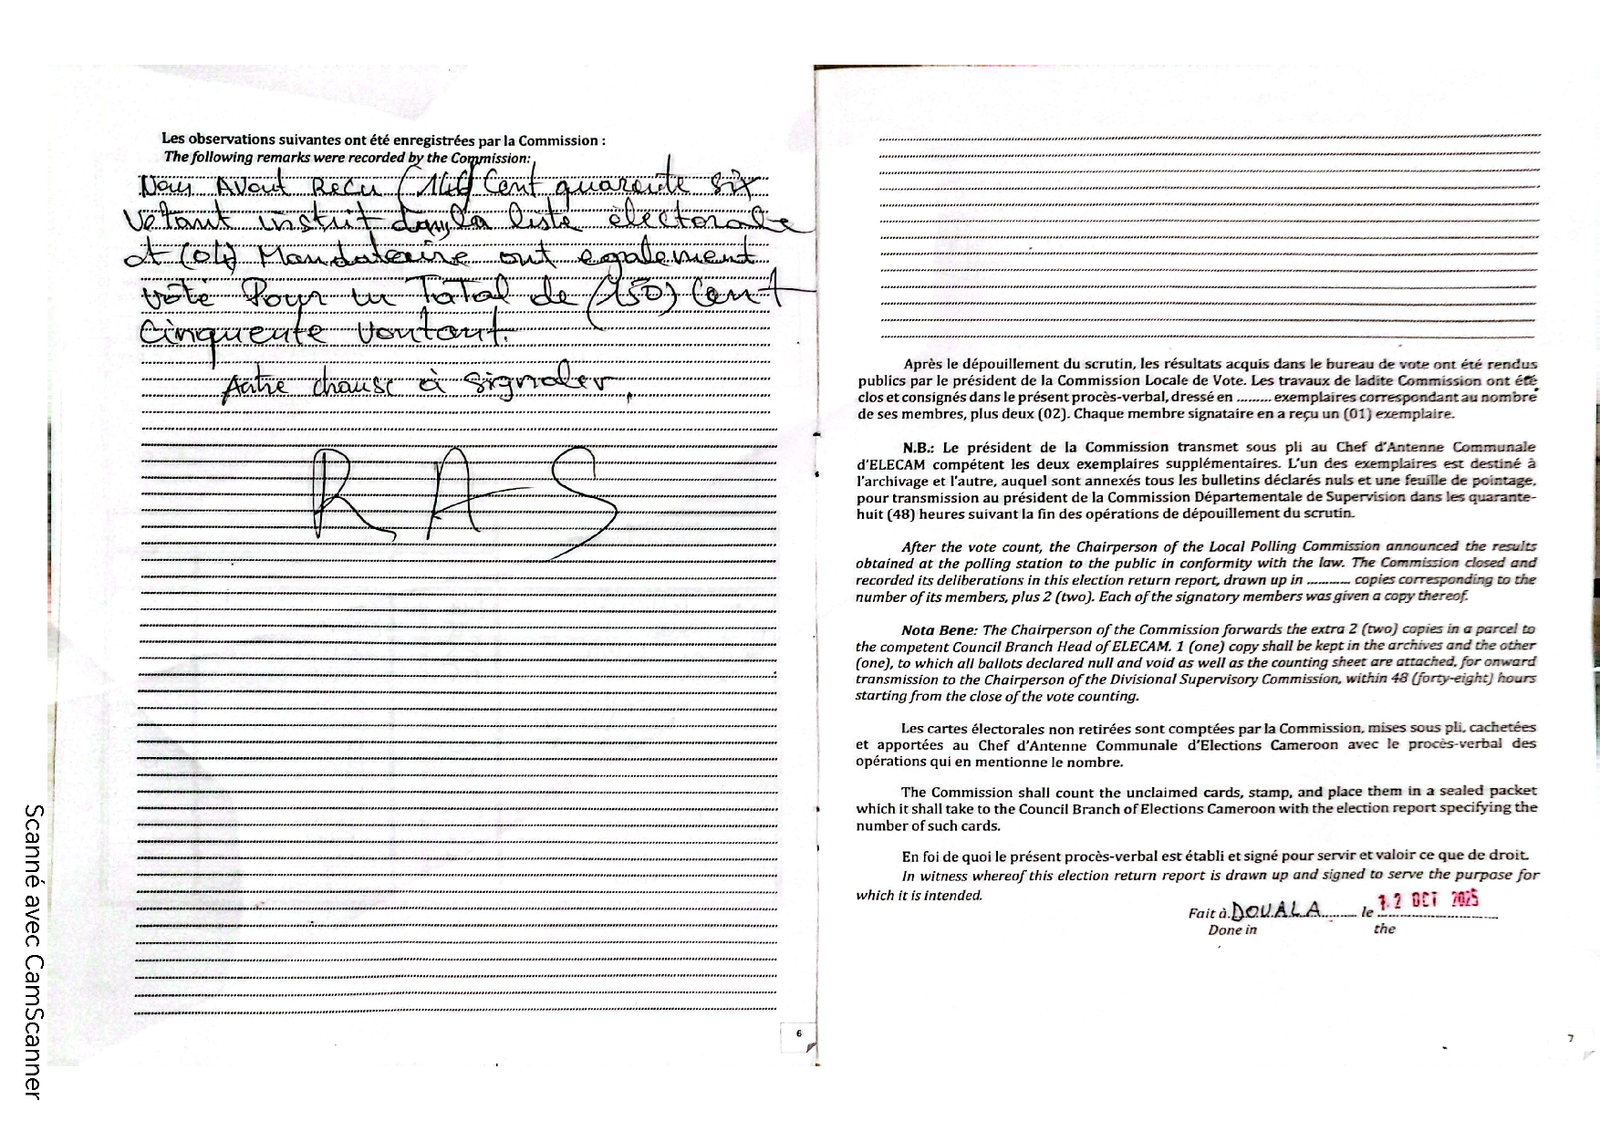 Les observations suivantes ont été enregistrées par la Commission :
The following remarks were recorded by the Commission:
Nous Avont Recu (146) Cent quarente six
Votant instrit dans la liste électorale
et (04) Mandataire ont egalement
voté Pour un Total de (150) Cent
Cinquente Vontant.
Autre chause à signaler.
RAS
6
Après le dépouillement du scrutin, les résultats acquis dans le bureau de vote ont été rendus
publics par le président de la Commission Locale de Vote. Les travaux de ladite Commission ont été
clos et consignés dans le présent procès-verbal, dressé en ......... exemplaires correspondant au nombre
de ses membres, plus deux (02). Chaque membre signataire en a reçu un (01) exemplaire.
N.B.: Le président de la Commission transmet sous pli au Chef d'Antenne Communale
d'ELECAM compétent les deux exemplaires supplémentaires. L'un des exemplaires est destiné à
l'archivage et l'autre, auquel sont annexés tous les bulletins déclarés nuls et une feuille de pointage,
pour transmission au président de la Commission Départementale de Supervision dans les quarante-
huit (48) heures suivant la fin des opérations de dépouillement du scrutin.
After the vote count, the Chairperson of the Local Polling Commission announced the results
obtained at the polling station to the public in conformity with the law. The Commission closed and
recorded its deliberations in this election return report, drawn up in ........... copies corresponding to the
number of its members, plus 2 (two). Each of the signatory members was given a copy thereof.
Nota Bene: The Chairperson of the Commission forwards the extra 2 (two) copies in a parcel to
the competent Council Branch Head of ELECAM. 1 (one) copy shall be kept in the archives and the other
(one), to which all ballots declared null and void as well as the counting sheet are attached, for onward
transmission to the Chairperson of the Divisional Supervisory Commission, within 48 (forty-eight) hours
starting from the close of the vote counting.
Les cartes électorales non retirées sont comptées par la Commission, mises sous pli, cachetées
et apportées au Chef d'Antenne Communale d'Elections Cameroon avec le procès-verbal des
opérations qui en mentionne le nombre.
The Commission shall count the unclaimed cards, stamp, and place them in a sealed packet
which it shall take to the Council Branch of Elections Cameroon with the election report specifying the
number of such cards.
En foi de quoi le présent procès-verbal est établi et signé pour servir et valoir ce que de droit.
In witness whereof this election return report is drawn up and signed to serve the purpose for
which it is intended.
Fait à DOUALA le 12 OCT 2025
Done in the
7
Scanné avec CamScanner